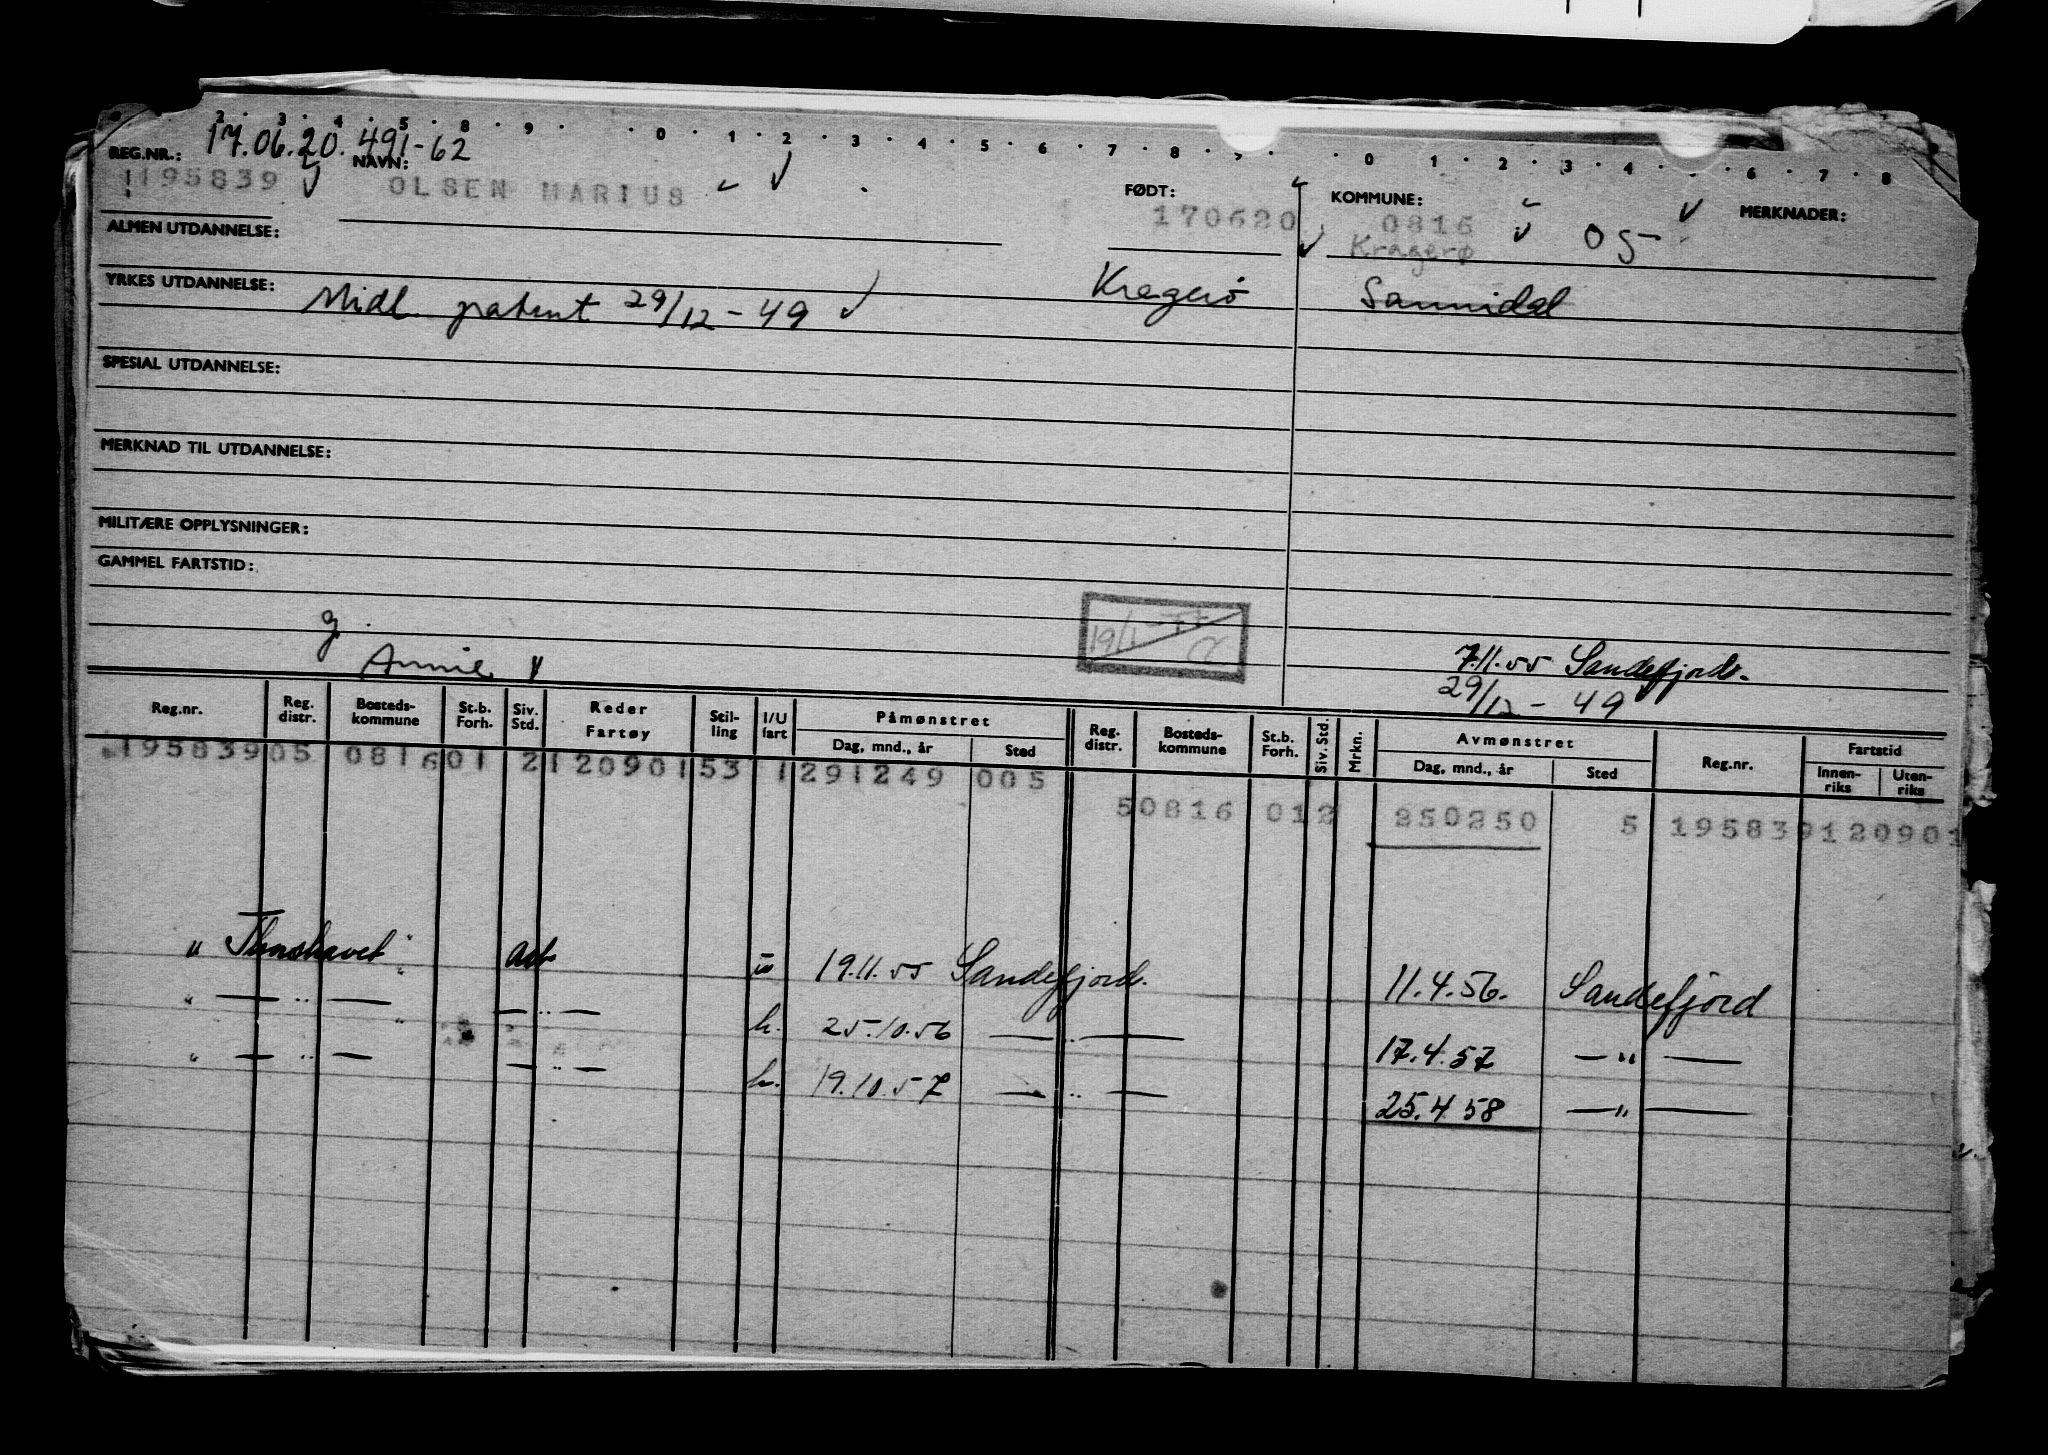 2 · 3 · 4 · 5 · 8 · 9 · 0 · 1 · 2 · 3 · 4 · 5 · 6 · 7 · 8 · 9 · 0 · 1 · 2 · 3 · 4 · 6 · 7 · 8
17.06.20.491-62
REG.NR.: NAVN: FØDT: KOMMUNE: MERKNADER:
195839 OLSEN MARIUS 170620 0816 05
Kragerø
ALMEN UTDANNELSE:
YRKES UTDANNELSE: Midl. patent 29/12-49 Kragerö Sannidal
SPESIAL UTDANNELSE:
MERKNAD TIL UTDANNELSE:
MILITÆRE OPPLYSNINGER:
GAMMEL FARTSTID:
g.
19/1-77
Annie
7.11.55 Sandefjord.
29/12-49
Reg.nr. Reg. distr. Bosteds-kommune St.b. Forh. Siv. Std. Reder Fartøy Stil-ling I/U fart Påmønstret Dag, mnd., år Sted Reg. distr. Bosteds-kommune St.b. Forh. Siv. Std. Mrkn. Avmønstret Dag, mnd., år Sted Reg.nr. Fartstid Innen-riks Uten-riks
195839 05 0816 01 2 1209015 3 1 291249 005
5 0816 01 2 250250 5 195839 120901
" Thorshavet" 19.11.55 Sandefjord. 11.4.56. Sandefjord
" — " — " — " — h. 25.10.56 — " — 17.4.57 — " —
" — " — — " — h. 19.10.57 — " — 25.4 58 — " —